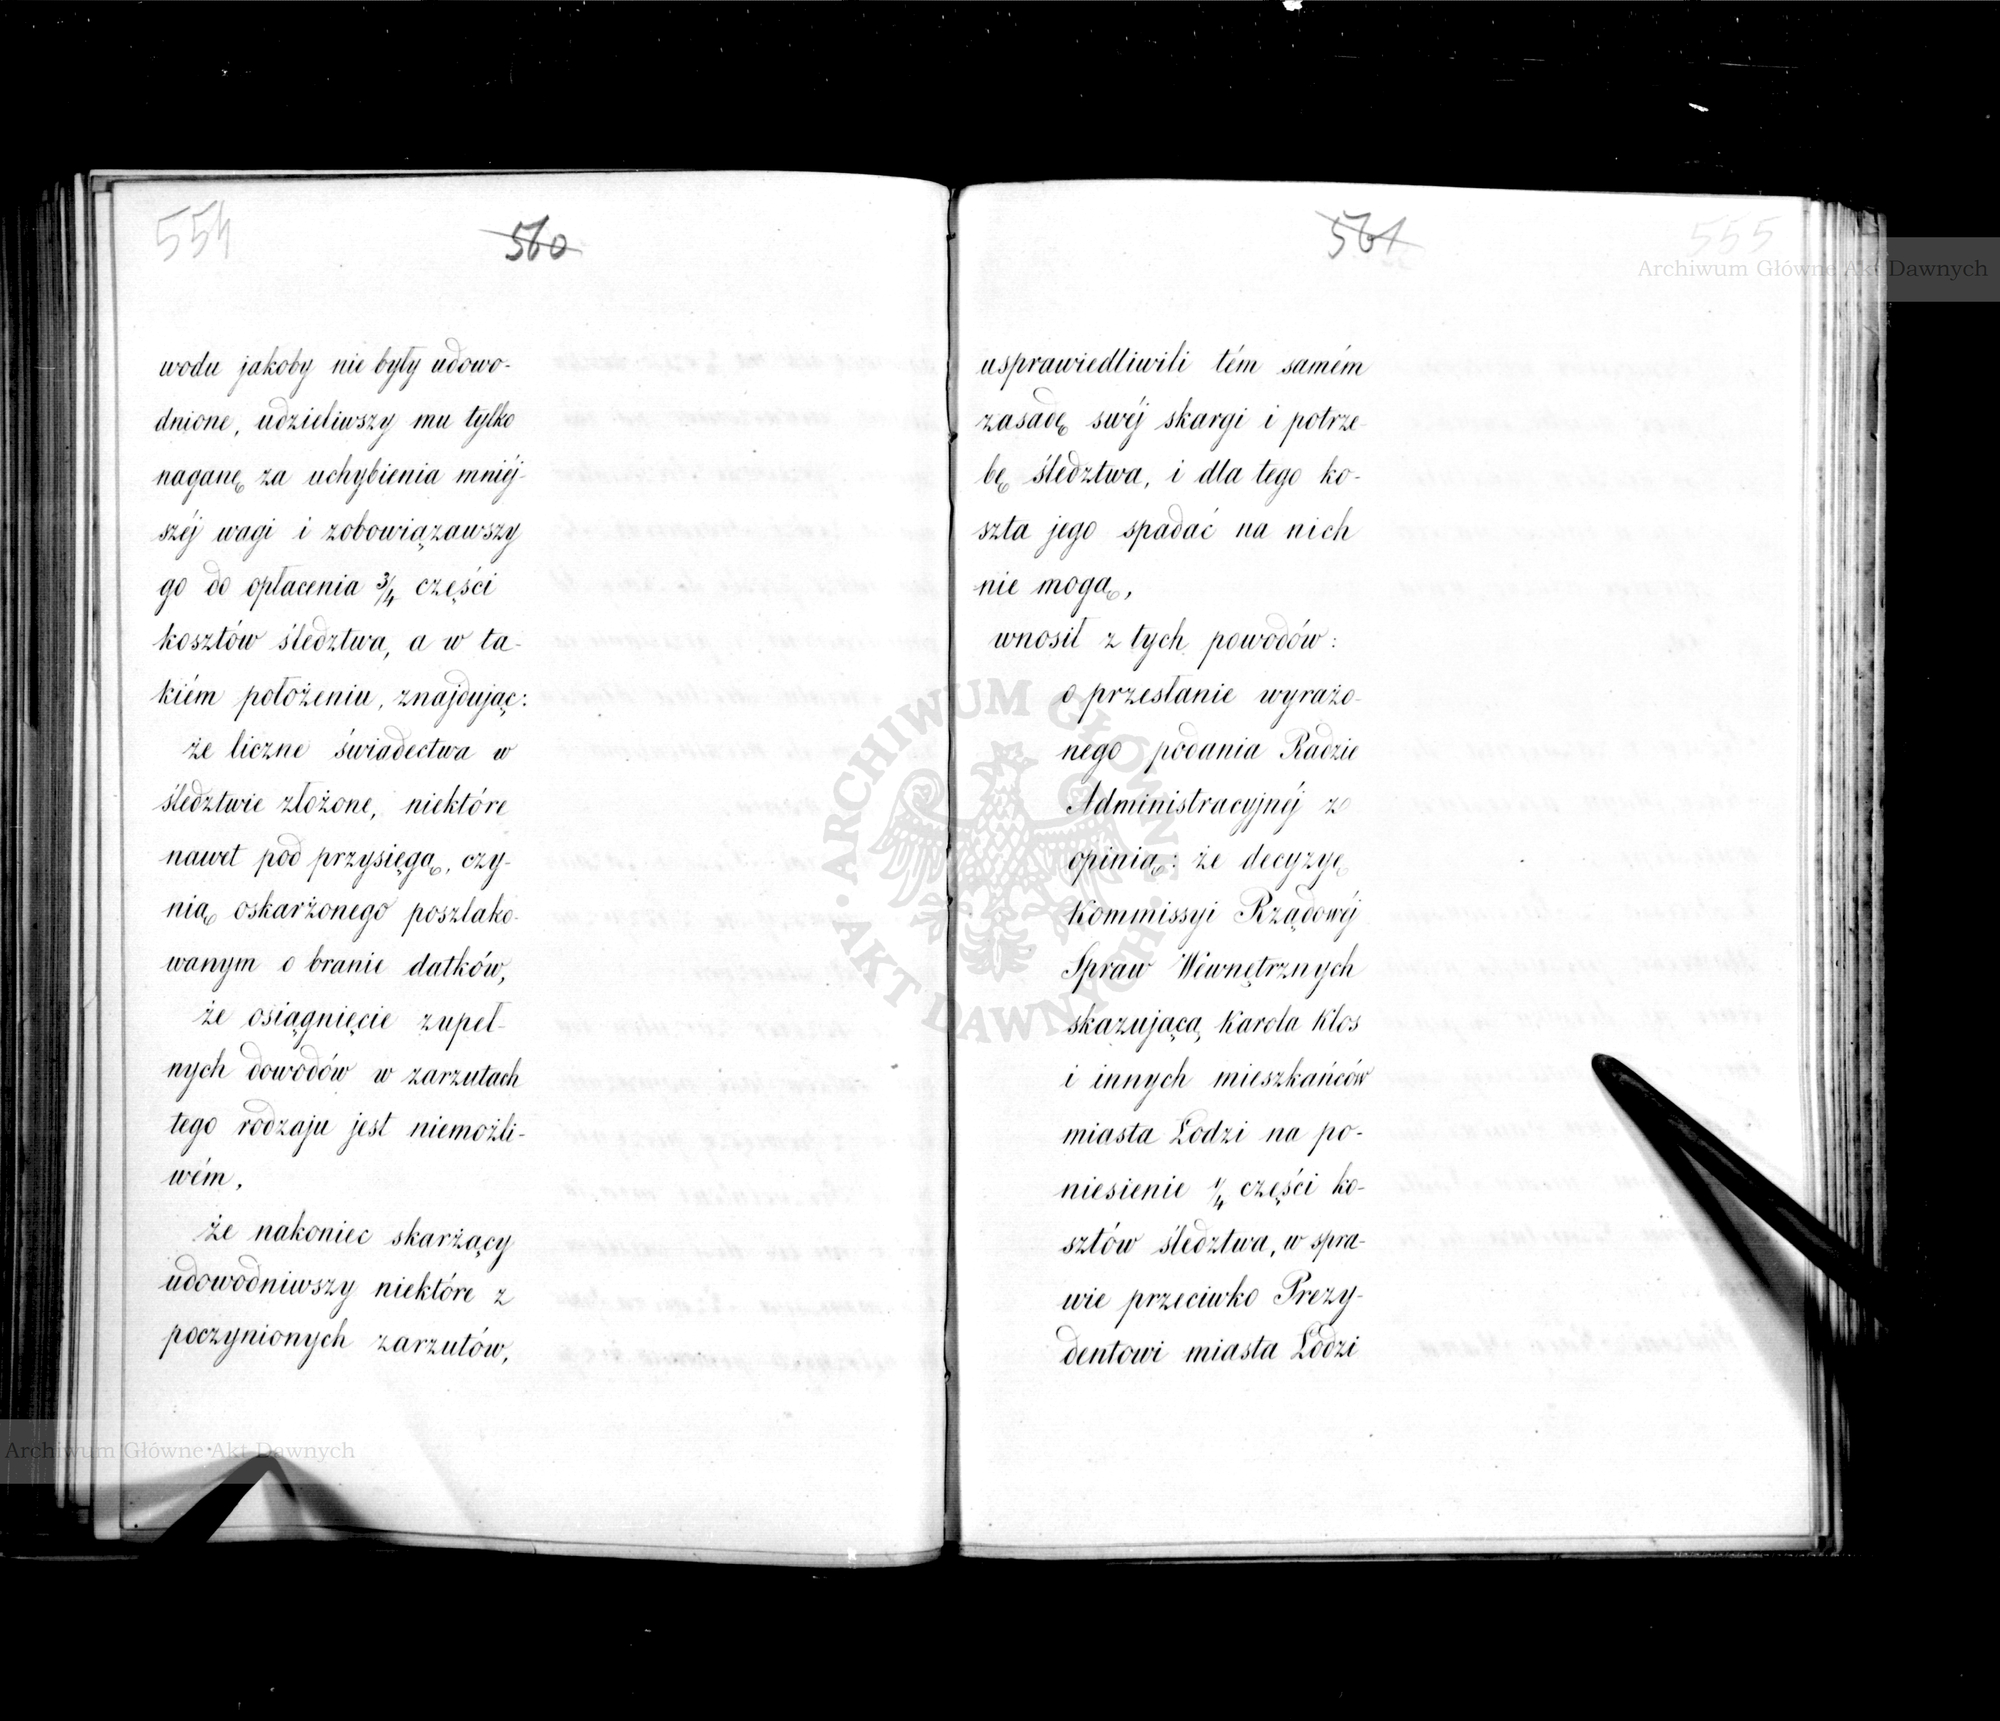 554
560
wodu jakoby nie były udowo-
dnione, udzieliwszy mu tylko
naganę za uchybienia mniéj-
széj wagi i zobowiązawszy
go do opłacenia 3/4 części
kosztów śledztwa, a w ta-
kiém położeniu, znajdując:
że liczne świadectwa w
śledztwie złożone, niektóre
nawet pod przysięgą, czy-
nią oskarżonego poszlako-
wanym o branie datków,
że osiągnięcie zupeł-
nych dowodów w zarzutach
tego rodzaju jest niemożli-
wém,
że nakoniec skarżący
udowodniwszy niektóre z
poczynionych zarzutów,
561
555
usprawiedliwili tém samém
zasadę swéj skargi i potrze-
bę śledztwa, i dla tego ko-
szta jego spadać na nich
nie mogą,
wnosił z tych powodów:
o przesłanie wyrażo-
nego podania Radzie
Administracyjnéj z
opinią: że decyzyę
Kommissyi Rządowéj
Spraw Wewnętrznych
skazującą Karola Klos
i innych mieszkańców
miasta Łodzi na po-
niesienie 1/4 części ko-
sztów śledztwa, w spra-
wie przeciwko Prezy-
dentowi miasta Łodzi
Archiwum Główne Akt Dawnych
Archiwum Główne Akt Dawnych
ARCHIWUM GŁÓWNE
AKT DAWNYCH